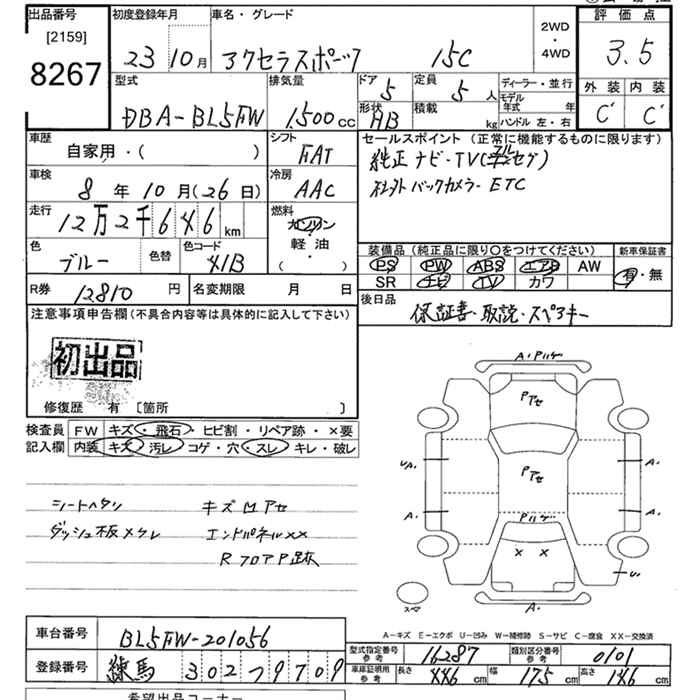 出品番号 初度登録年月 車名・グレード 2WD・4WD 評価点
[2159]
8267 23 10月 アクセラスポーツ 15C 3.5
外装 内装
C' C'
型式 排気量 ドア 5 定員 5人 ディーラー・並行
DBA-BL5FW 1,500cc 形状 HB 積載 kg モデル年式 年
ハンドル 左・右
車歴 シフト セールスポイント (正常に機能するものに限ります)
自家用・( ) FAT 純正ナビ・TV(フルセグ)
車検 冷房 社外バックカメラ・ETC
8年10月(26日) AAC
走行 燃料
12万2千646km ガソリン
軽油
( ・ )
色 色替 色コード 装備品 (純正品に限り○をつけてください) 新車保証書
ブルー 41B PS PW ABS エアB AW 有・無
SR ナビ TV カワ
R券 12810円 名変期限 月 日 後日品
注意事項申告欄(不具合内容等は具体的に記入して下さい) 保証書・取説・スペアキー
初出品
修復歴 有 [箇所 ]
検査員 FW キズ・飛石・ヒビ割・リペア跡・×要
記入欄 内装 キズ・汚レ・コゲ・穴・スレ・キレ・破レ
シートヘタリ キズMアセ
ダッシュ板メクレ エンドパネルXX
RフロアP跡
A・Pハゲ
Pアセ
Pアセ
UA. A.
Pハゲ
A. A.
× ×
U.
スマ A.
A-キズ E-エクボ U-凹み W-補修跡 S-サビ C-腐食 XX-交換済
車台番号 BL5FW-201056 型式指定番号 参考 16287 類別区分番号 参考 0101
登録番号 練馬 302 フ 9709 車庫証明用 参考 長さ 446cm 幅 175cm 高さ 146cm
希望出品コーナー